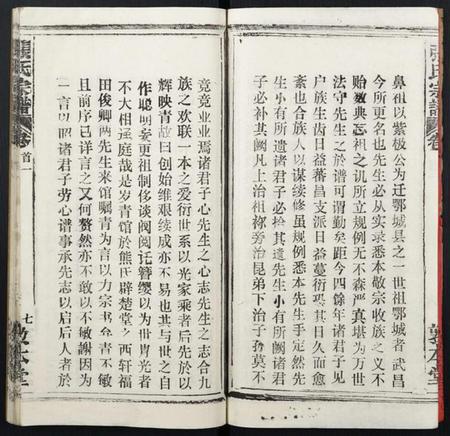 張氏宗譜 卷
鼻祖以紫极公為迁鄂城县之一世祖鄂城者武昌
今所更名也先生必从实录悉本敬宗收族之义不
貽数典忘祖之讥所立规例无不森严真堪为万世
法守先生之於谱可谓勤矣距今四馀年诸君子见
户族生齿日益蕃昌支派日益蔓衍恐其日久而愈
紊也合族人以谋续修虽规例悉本先生手定然先
生小有所遗诸君子必拾其遗先生小有所阙诸君
子必补其阙凡上治祖祢旁治昆弟下治子孙莫不
敦本堂
竞竞业业焉诸君子心先生之心志先生之志合九
族之欢联一本之爱衍世系以光家乘者后先於以
辉映青故曰创始维艰续成亦不易也其与世之自
作聪明妄更祖制侈谈阀阅讬簪缨以为世胄光者
不大相迳庭哉是岁青馆於熊氏辟楚堂之西轩福
田俊卿两先生来馆属青为言以为宗书弁青不敏
且前序已详言之又何赘然亦不敢以不敏谢因为
一言以昭诸君子劳心谱事承先志以启后人者於
張氏宗譜 卷首一
七 敦本堂